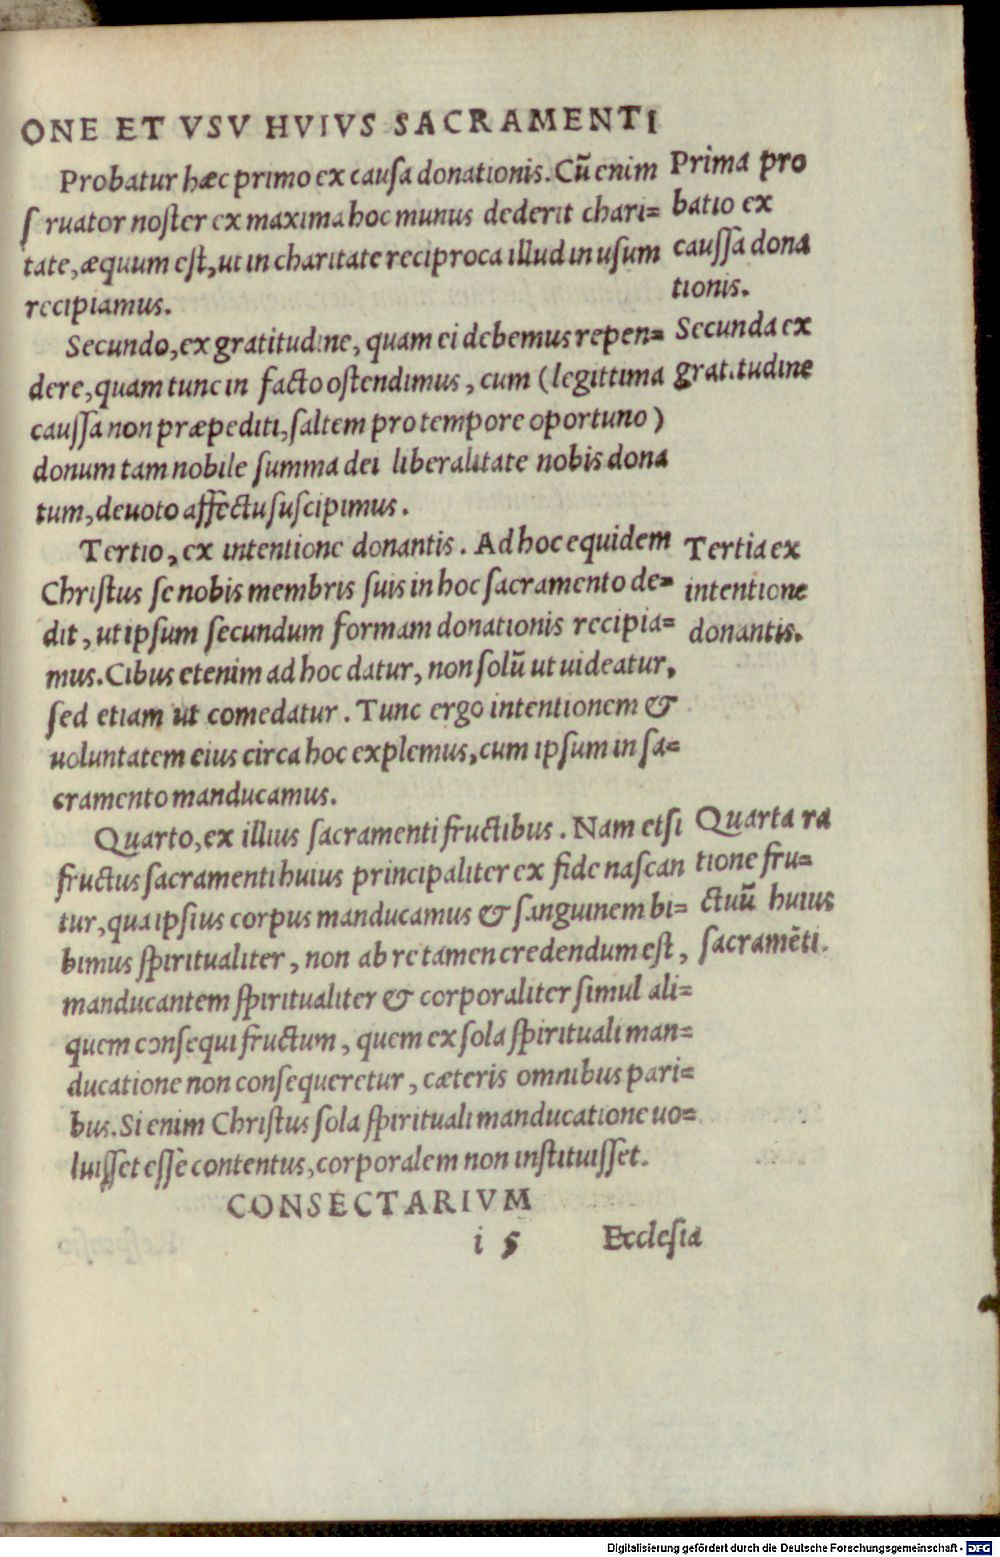 ONE ET VSV HVIVS SACRAMENTI
Probatur hæc primo ex causa donationis. Cũ enim
ſ ruator noſter ex maxima hoc munus dederit chari=
tate, æquum eſt, ut in charitate reciproca illud in uſum
recipiamus.
Prima pro
batio ex
cauſſa dona
tionis.
Secundo, ex gratitudine, quam ei debemus repen=
dere, quam tunc in facto oſtendimus, cum (legittima
cauſſa non præpediti, ſaltem pro tempore oportuno)
donum tam nobile ſumma dei liberalitate nobis dona
tum, deuoto affectu ſuſcipimus.
Secunda ex
gratitudine
Tertio, ex intentione donantis. Ad hoc equidem
Chriſtus ſe nobis membris ſuis in hoc ſacramento de=
dit, ut ipſum ſecundum formam donationis recipia=
mus. Cibus etenim ad hoc datur, non ſolũ ut uideatur,
ſed etiam ut comedatur. Tunc ergo intentionem &
uoluntatem eius circa hoc explemus, cum ipſum in ſa=
cramento manducamus.
Tertia ex
intentione
donantis.
Quarto, ex illius ſacramenti fructibus. Nam etſi
fructus ſacramenti huius principaliter ex fide naſcan
tur, qua ipſius corpus manducamus & ſanguinem bi=
bimus ſpiritualiter, non ab re tamen credendum eſt,
manducantem ſpiritualiter & corporaliter ſimul ali=
quem conſequi fructum, quem ex ſola ſpirituali man=
ducatione non conſequeretur, cæteris omnibus pari=
bus. Si enim Chriſtus ſola ſpirituali manducatione uo=
luiſſet eſſe contentus, corporalem non inſtituiſſet.
Quarta ra
tione fru=
ctuũ huius
ſacramẽti.
CONSECTARIVM
i 5 Eccleſia
Digitalisierung gefördert durch die Deutsche Forschungsgemeinschaft - DFG